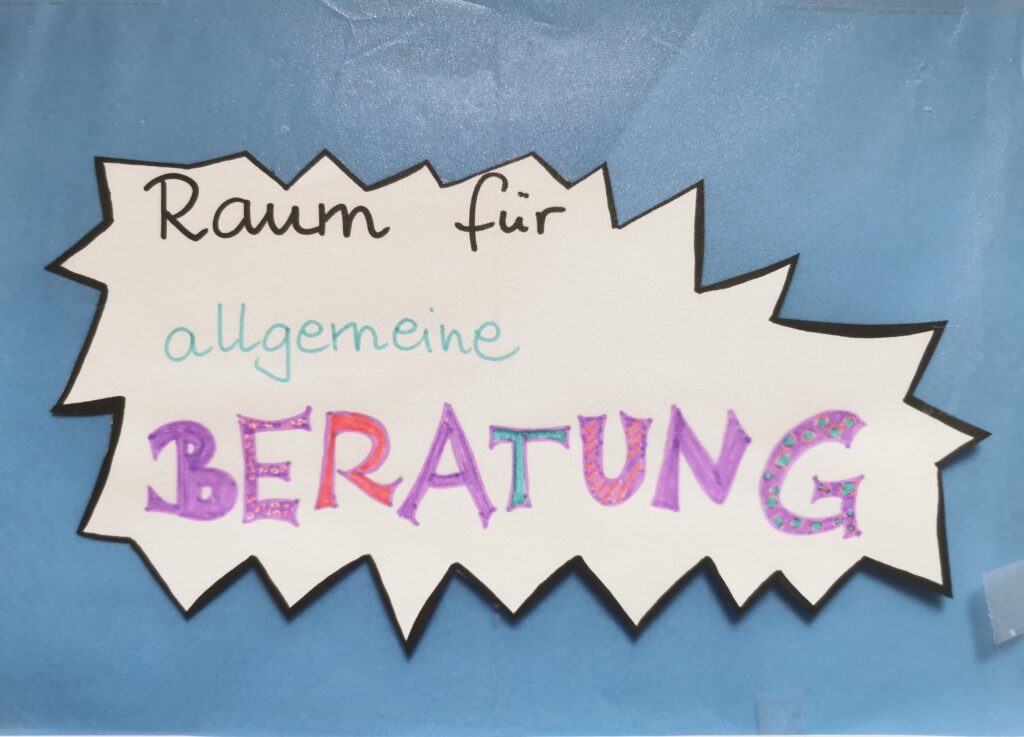 Raum für
allgemeine
BERATUNG